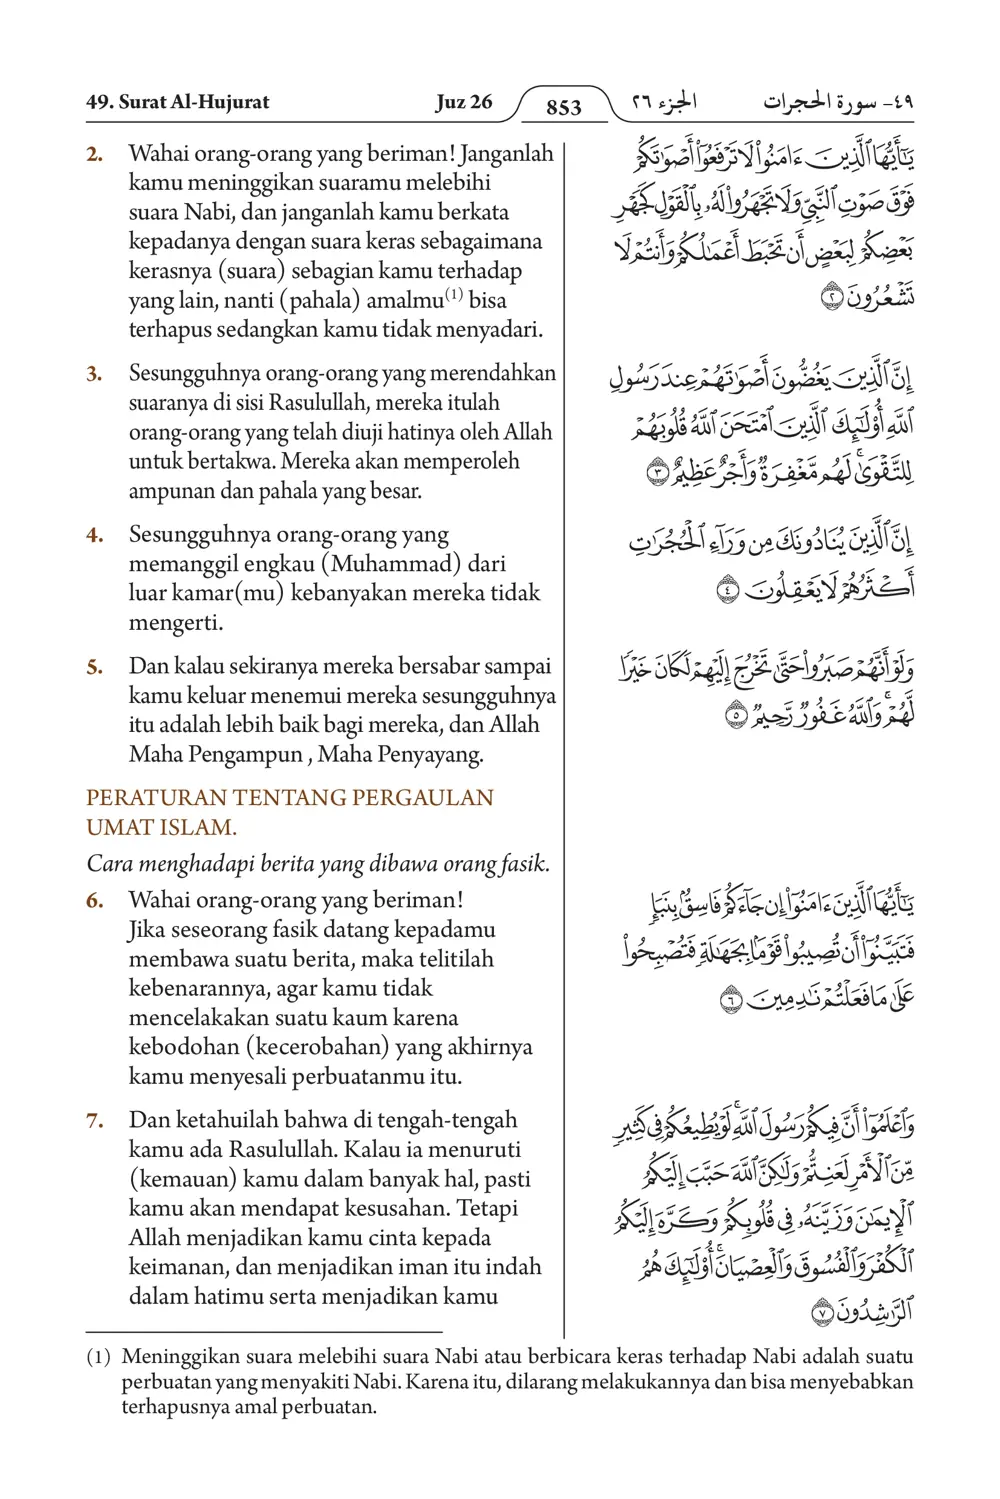 49. Surat Al-Hujurat Juz 26 853 الجزء ٢٦ ٤٩- سورة الحجرات
2. Wahai orang-orang yang beriman! Janganlah
kamu meninggikan suaramu melebihi
suara Nabi, dan janganlah kamu berkata
kepadanya dengan suara keras sebagaimana
kerasnya (suara) sebagian kamu terhadap
yang lain, nanti (pahala) amalmu(1) bisa
terhapus sedangkan kamu tidak menyadari.
3. Sesungguhnya orang-orang yang merendahkan
suaranya di sisi Rasulullah, mereka itulah
orang-orang yang telah diuji hatinya oleh Allah
untuk bertakwa. Mereka akan memperoleh
ampunan dan pahala yang besar.
4. Sesungguhnya orang-orang yang
memanggil engkau (Muhammad) dari
luar kamar(mu) kebanyakan mereka tidak
mengerti.
5. Dan kalau sekiranya mereka bersabar sampai
kamu keluar menemui mereka sesungguhnya
itu adalah lebih baik bagi mereka, dan Allah
Maha Pengampun , Maha Penyayang.
PERATURAN TENTANG PERGAULAN
UMAT ISLAM.
Cara menghadapi berita yang dibawa orang fasik.
6. Wahai orang-orang yang beriman!
Jika seseorang fasik datang kepadamu
membawa suatu berita, maka telitilah
kebenarannya, agar kamu tidak
mencelakakan suatu kaum karena
kebodohan (kecerobahan) yang akhirnya
kamu menyesali perbuatanmu itu.
7. Dan ketahuilah bahwa di tengah-tengah
kamu ada Rasulullah. Kalau ia menuruti
(kemauan) kamu dalam banyak hal, pasti
kamu akan mendapat kesusahan. Tetapi
Allah menjadikan kamu cinta kepada
keimanan, dan menjadikan iman itu indah
dalam hatimu serta menjadikan kamu
يَـٰٓأَيُّهَا ٱلَّذِينَ ءَامَنُوا۟ لَا تَرْفَعُوٓا۟ أَصْوَٰتَكُمْ
فَوْقَ صَوْتِ ٱلنَّبِىِّ وَلَا تَجْهَرُوا۟ لَهُۥ بِٱلْقَوْلِ كَجَهْرِ
بَعْضِكُمْ لِبَعْضٍ أَن تَحْبَطَ أَعْمَـٰلُكُمْ وَأَنتُمْ لَا
تَشْعُرُونَ ٢
إِنَّ ٱلَّذِينَ يَغُضُّونَ أَصْوَٰتَهُمْ عِندَ رَسُولِ
ٱللَّهِ أُو۟لَـٰٓئِكَ ٱلَّذِينَ ٱمْتَحَنَ ٱللَّهُ قُلُوبَهُمْ
لِلتَّقْوَىٰ ۚ لَهُم مَّغْفِرَةٌ وَأَجْرٌ عَظِيمٌ ٣
إِنَّ ٱلَّذِينَ يُنَادُونَكَ مِن وَرَآءِ ٱلْحُجُرَٰتِ
أَكْثَرُهُمْ لَا يَعْقِلُونَ ٤
وَلَوْ أَنَّهُمْ صَبَرُوا۟ حَتَّىٰ تَخْرُجَ إِلَيْهِمْ لَكَانَ خَيْرًا
لَّهُمْ ۚ وَٱللَّهُ غَفُورٌ رَّحِيمٌ ٥
يَـٰٓأَيُّهَا ٱلَّذِينَ ءَامَنُوٓا۟ إِن جَآءَكُمْ فَاسِقٌۢ بِنَبَإٍ
فَتَبَيَّنُوٓا۟ أَن تُصِيبُوا۟ قَوْمًۢا بِجَهَـٰلَةٍ فَتُصْبِحُوا۟
عَلَىٰ مَا فَعَلْتُمْ نَـٰدِمِينَ ٦
وَٱعْلَمُوٓا۟ أَنَّ فِيكُمْ رَسُولَ ٱللَّهِ ۚ لَوْ يُطِيعُكُمْ فِى كَثِيرٍ
مِّنَ ٱلْأَمْرِ لَعَنِتُّمْ وَلَـٰكِنَّ ٱللَّهَ حَبَّبَ إِلَيْكُمُ
ٱلْإِيمَـٰنَ وَزَيَّنَهُۥ فِى قُلُوبِكُمْ وَكَرَّهَ إِلَيْكُمُ
ٱلْكُفْرَ وَٱلْفُسُوقَ وَٱلْعِصْيَانَ ۚ أُو۟لَـٰٓئِكَ هُمُ
ٱلرَّٰشِدُونَ ٧
(1) Meninggikan suara melebihi suara Nabi atau berbicara keras terhadap Nabi adalah suatu
perbuatan yang menyakiti Nabi. Karena itu, dilarang melakukannya dan bisa menyebabkan
terhapusnya amal perbuatan.